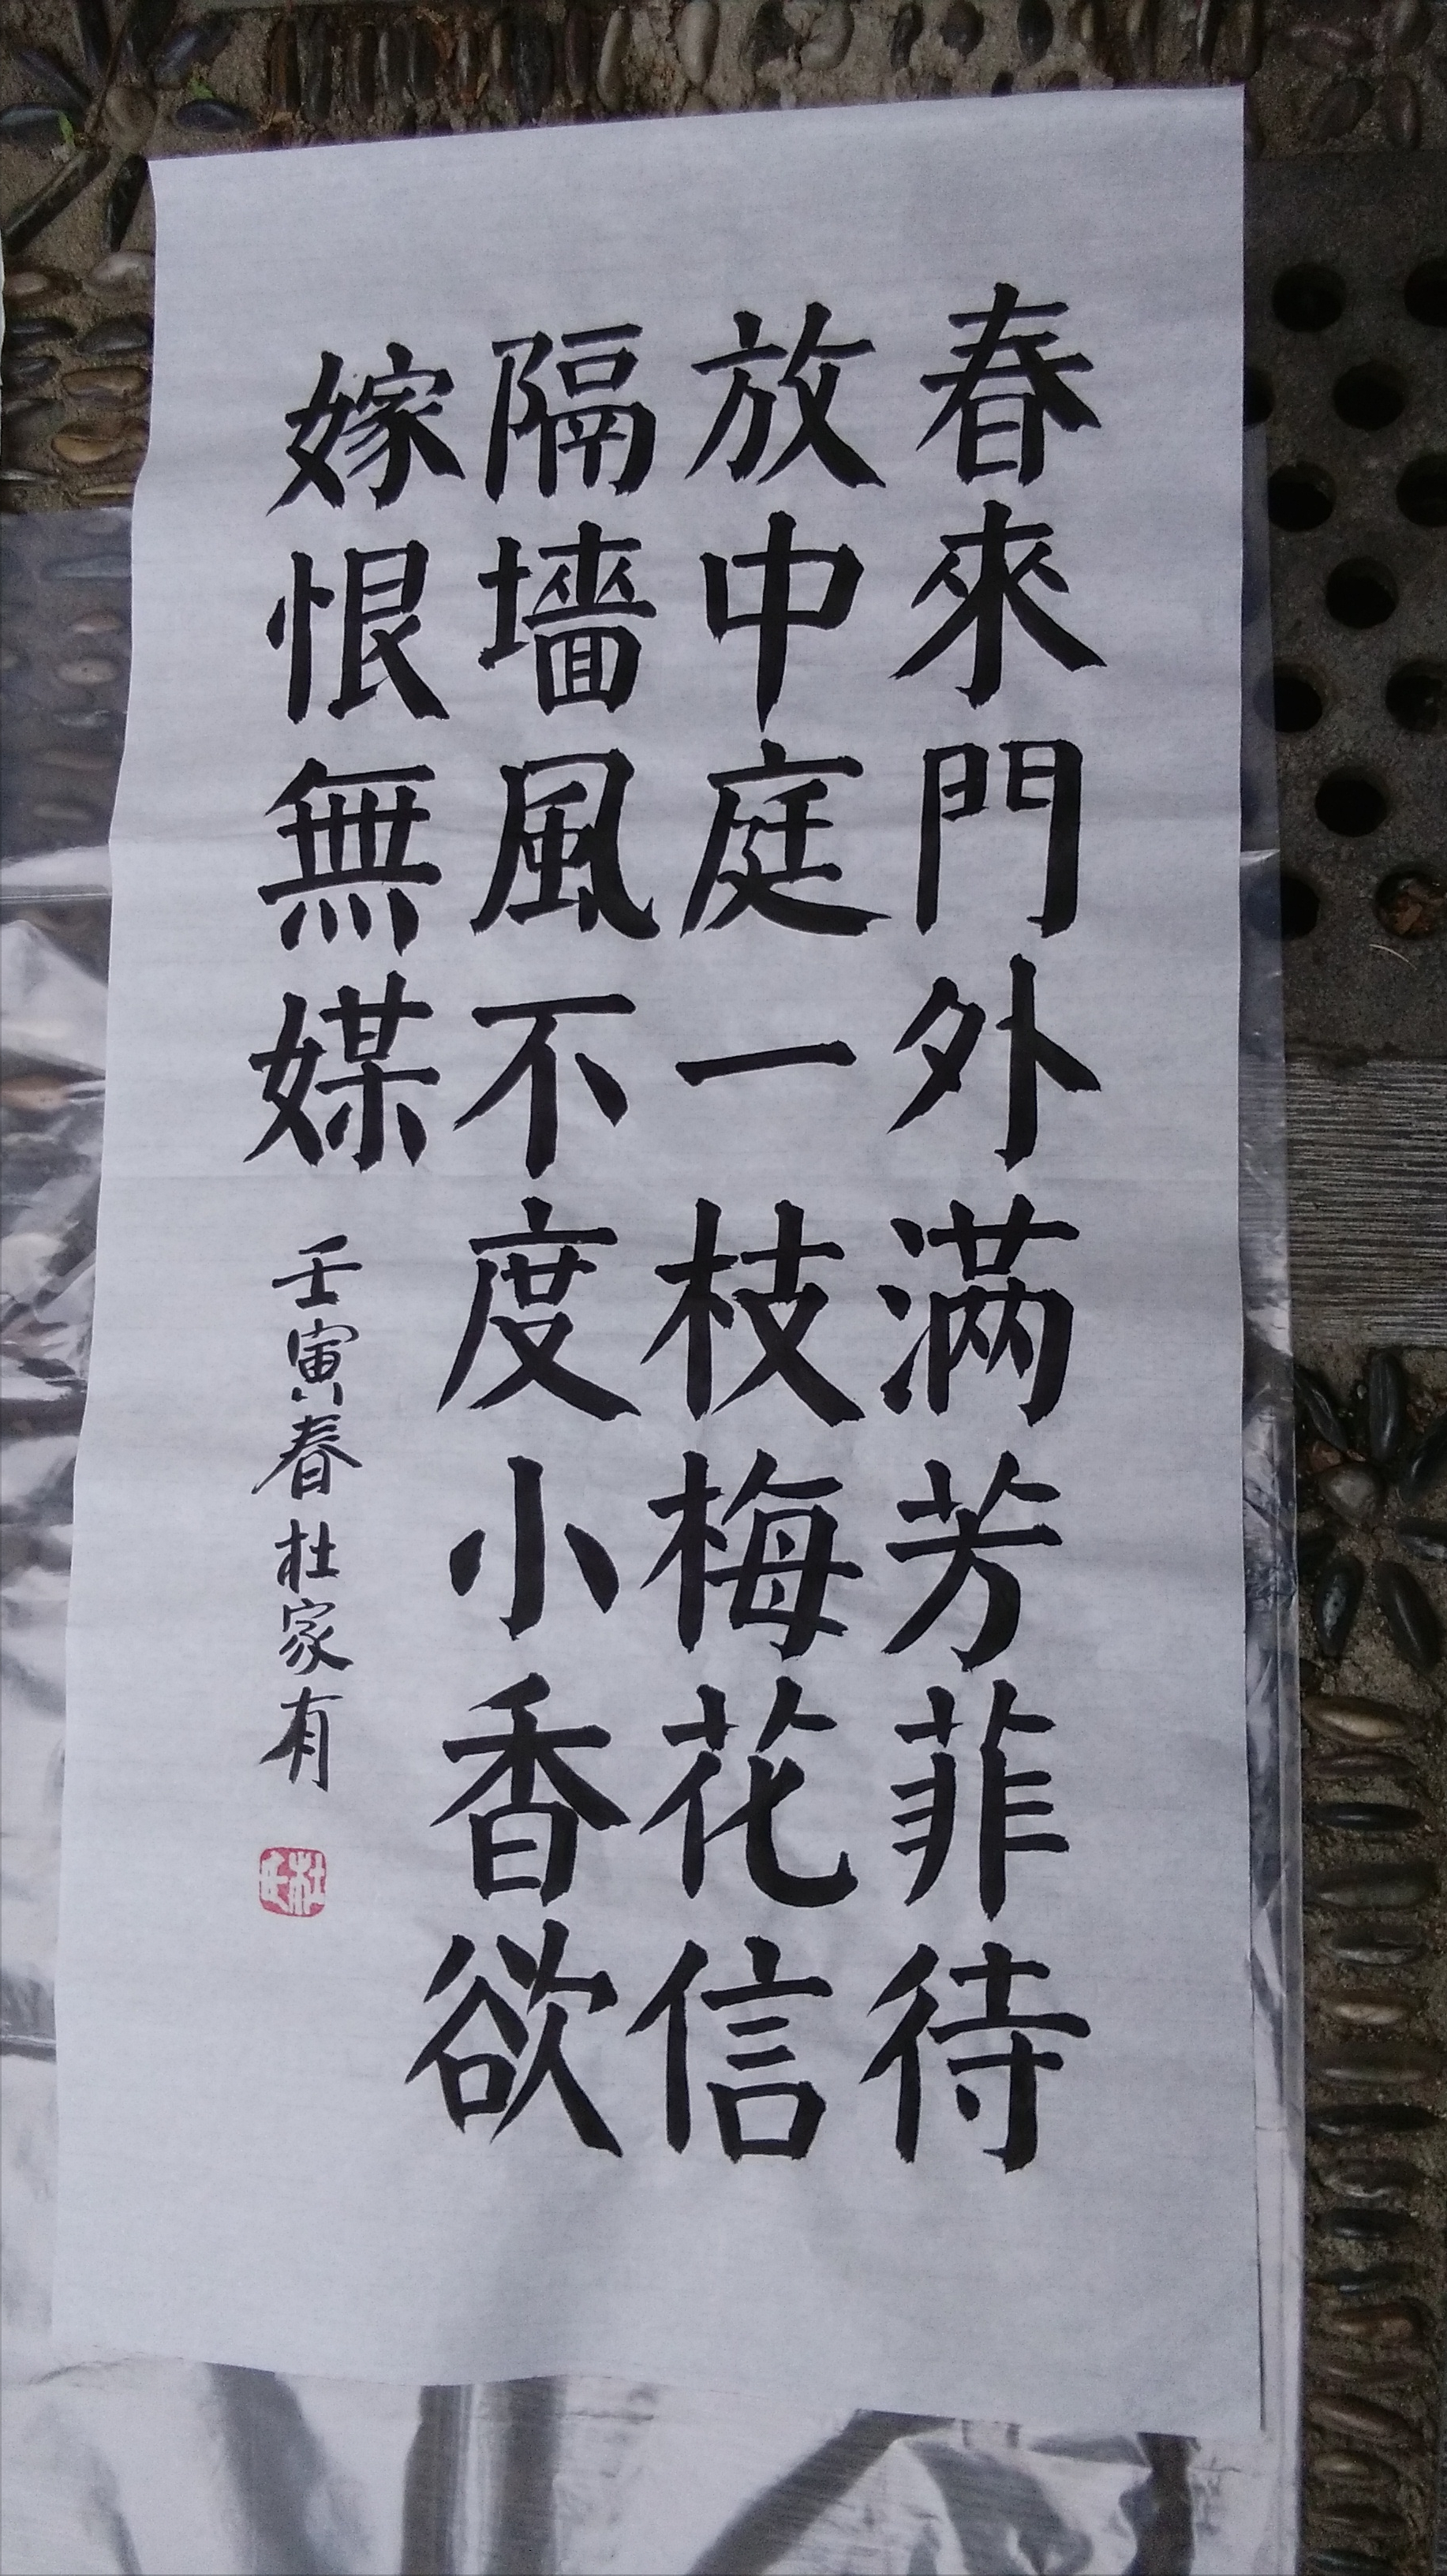 春來門外滿芳菲待
放中庭一枝梅花信
隔墻風不度小香欲
嫁恨無媒
壬寅春杜家有
杜氏